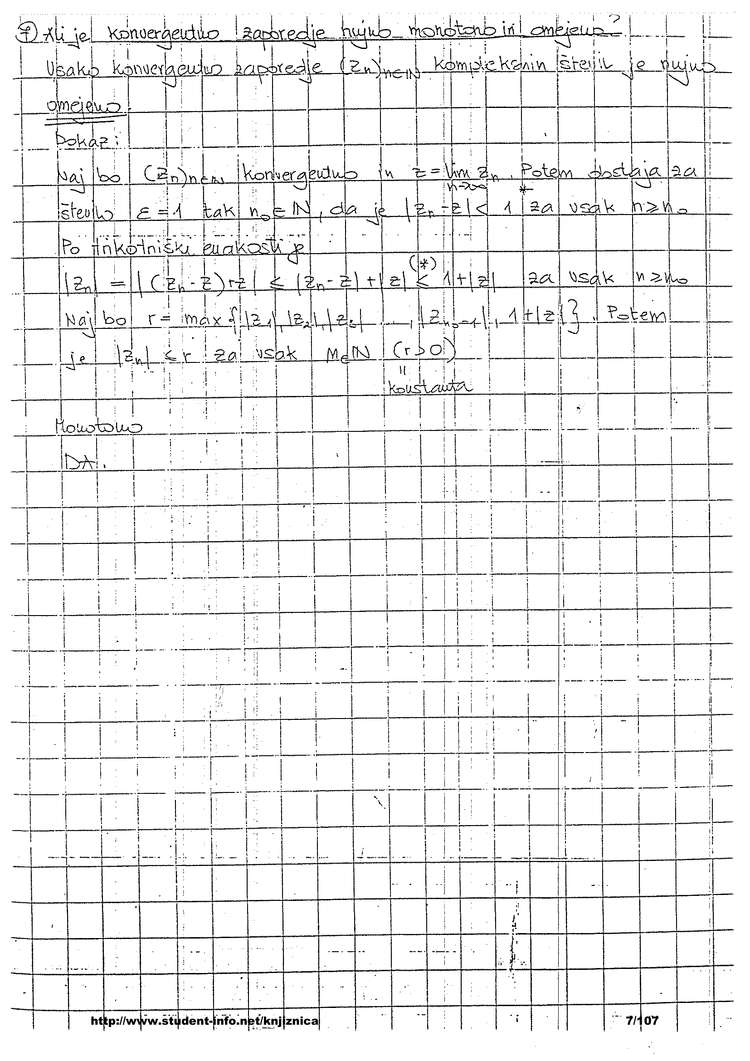 ⑦ Ali je konvergentno zaporedje nujno monotono in omejeno?
Vsako konvergentno zaporedje (Zn)n∈ℕ kompleksnin števil je nujno
omejeno.
Dokaz:
Naj bo (Zn)n∈ℕ konvergentno in z = lim Zn. Potem obstaja za
n→∞ *
število ε=1 tak n₀∈ℕ, da je |Zn-z| < 1 za vsak n≥n₀
Po trikotniški enakosti je
(*)
|Zn| = |(Zn-z)+z| ≤ |Zn-z|+|z| < 1+|z| za vsak n≥n₀
Naj bo r = max{|Z₁|,|Z₂|,|Z₃| ...., |Zn₀-1|, 1+|z|}. Potem
je |Zn| ≤ r za vsak n∈ℕ (r>0)
=
konstanta
Monotono
DA.
http://www.student-info.net/knjiznica
7/107